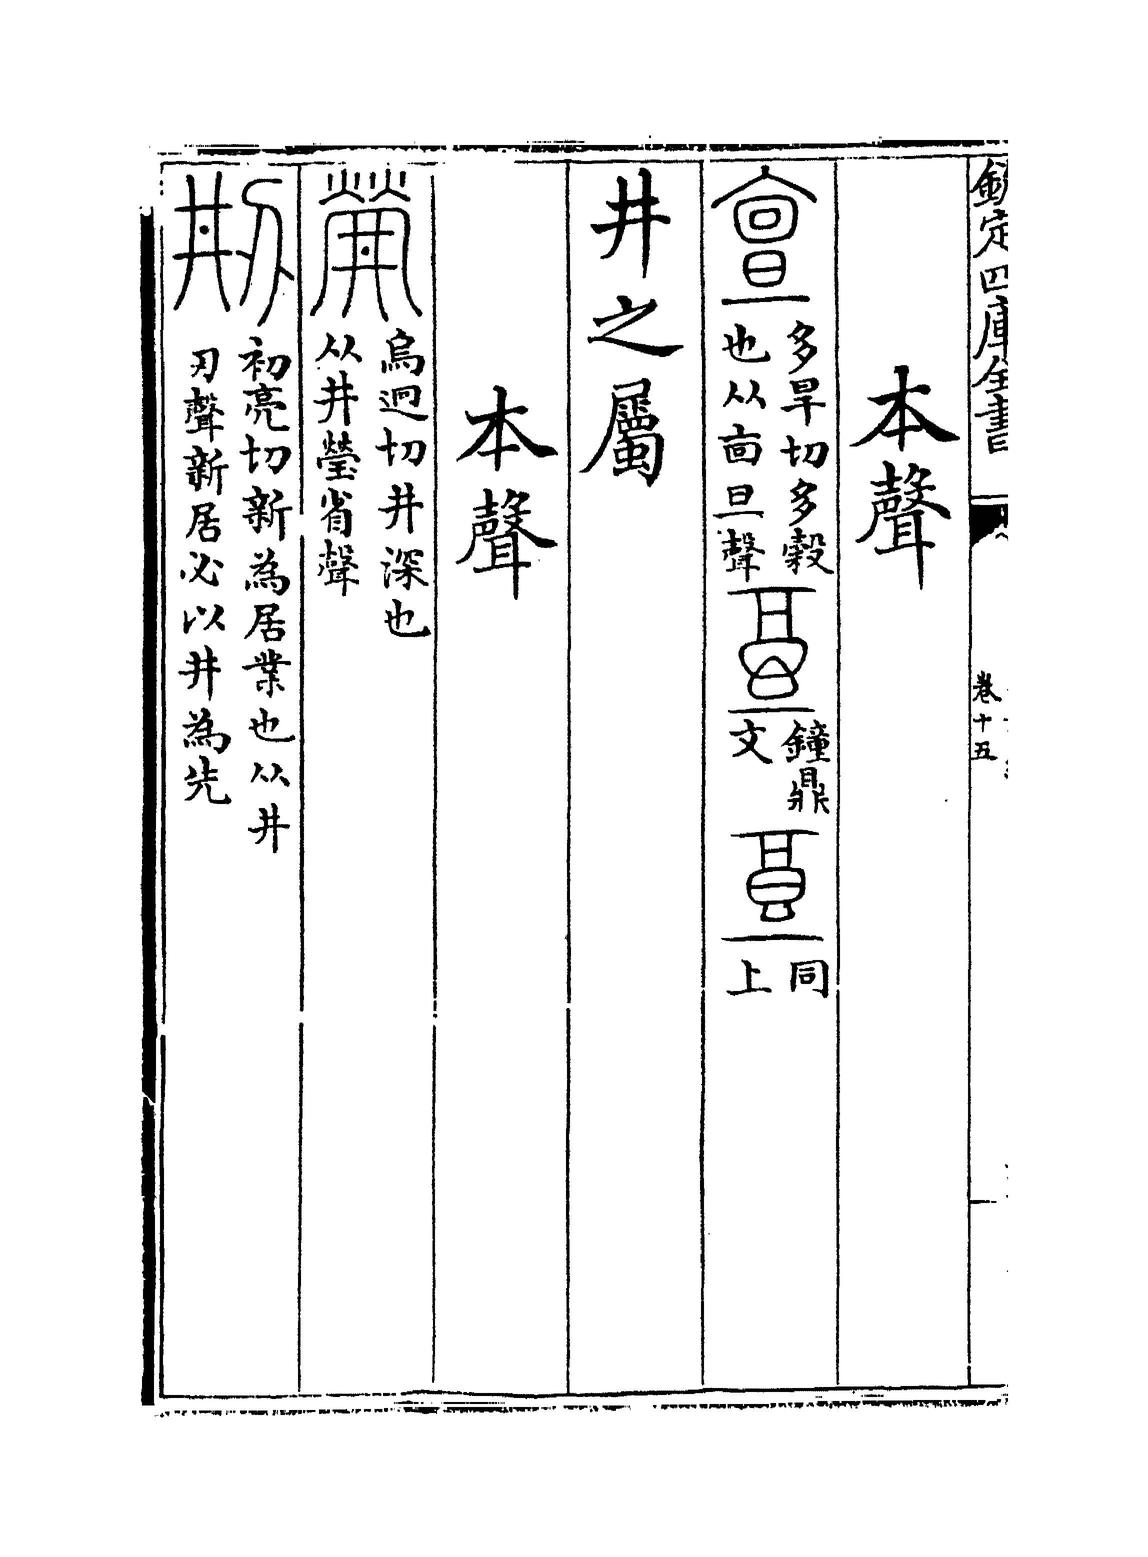 欽定四庫全書
卷十五
本聲
亶 多旱切多穀也从㐭旦聲 鐘鼎文 同上
井之屬
本聲
烏迥切井深也从井瑩省聲
初亮切新為居業也从井刅聲新居必以井為先